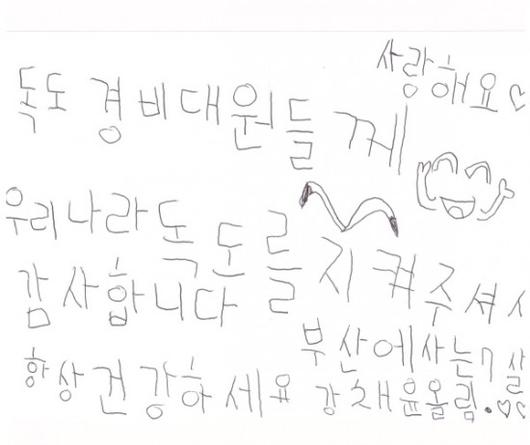 사랑해요♡
독도 경비대원들께
우리나라 독도를 지켜주셔서
감사합니다
항상 건강하세요
부산에사는 7살
강채윤올림.♡♡